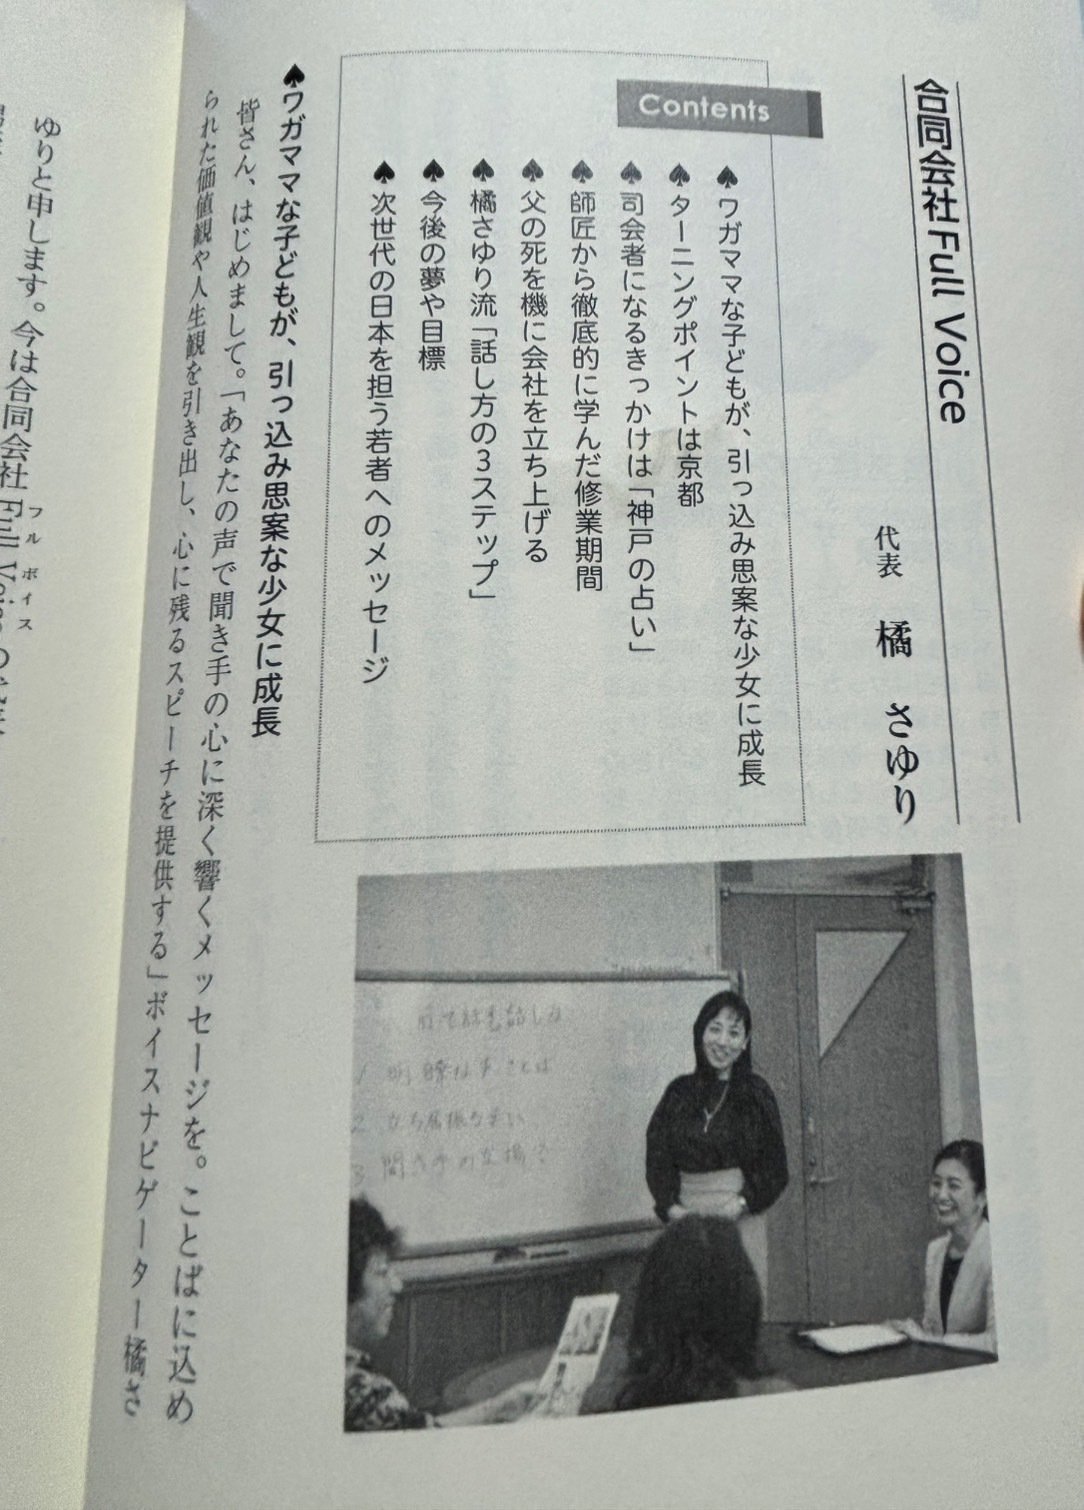 合同会社 Full Voice
代表 橘 さゆり
Contents
♠ワガママな子どもが、引っ込み思案な少女に成長
♠ターニングポイントは京都
♠司会者になるきっかけは「神戸の占い」
♠師匠から徹底的に学んだ修業期間
♠父の死を機に会社を立ち上げる
♠橘さゆり流「話し方の3ステップ」
♠今後の夢や目標
♠次世代の日本を担う若者へのメッセージ
♠ワガママな子どもが、引っ込み思案な少女に成長
皆さん、はじめまして。「あなたの声で聞き手の心に深く響くメッセージを。ことばに込め
られた価値観や人生観を引き出し、心に残るスピーチを提供する」ボイスナビゲーター橘さ
ゆりと申します。今は合同会社 Full Voice の
フル ボイス
1 明瞭な
2 立ち居振る舞い
3 聞き手の